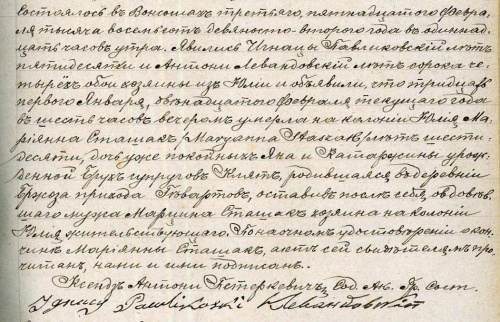 Состоялось въ Вонсошахъ третьяго, пятнадцатаго Февра-
ля тысяча восемьсотъ девяносто-второго года въ одиннад-
цать часовъ утра. Явились Игнацы Павликовскій лѣтъ
пятидесяти и Антони Левандовскій лѣтъ сорока че-
тырёхъ обои хозяины изъ Юліи и объявили, что тридцать
перваго Января, двѣнадцатаго Февраля текущаго года
въ шесть часовъ вечеромъ умерла на колоніи Юлія Ма-
ріянна Сташакъ /Maryanna Stasak/ лѣтъ шести-
десяти, дочь уже покойныхъ Яна и Катаржины урож-
денной супруговъ родившаяся въ деревни
прихода оставивъ послѣ себя, овдовѣв-
шаго мужа Марцина Сташакъ хозяина на колоніи
Юлія жительствующаго. По наочномъ удостовереніи о кон-
чинѣ Маріянны Сташакъ, актъ сей свидѣтелямъ про-
читанъ, нами и ими подписанъ.
Ксендзъ Антони Петеркевичъ, Сод. Ак. Гр. Сост.
Ignacy Pawlikoski Левандовскій